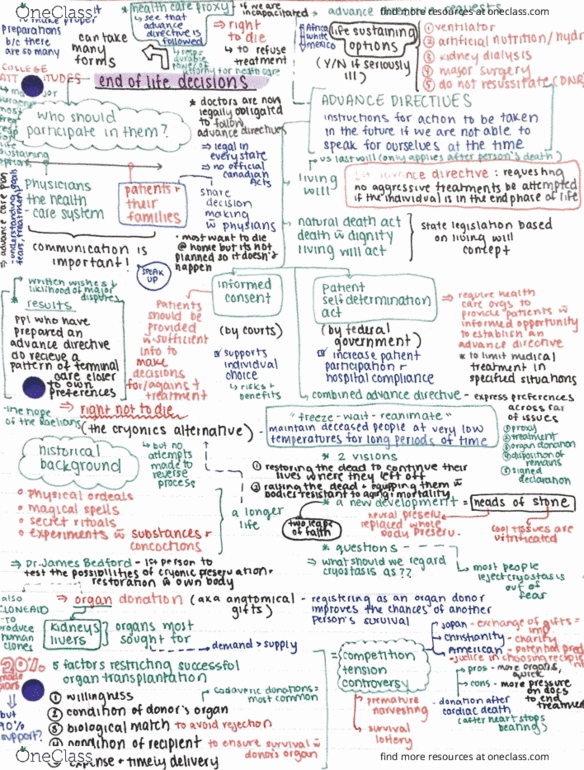 OneClass
find more resources at oneclass.com
to make proper
preparations
b/c there
are so many
can take
many
forms
* health care proxy
↳ see that
advance
directive is
followed
durable
power of
attorney for health care
if we are
incapacitated
⇒ right
to die
↳ to refuse
treatment
advance
Africa
white
mexico
life sustaining
options
(Y/N if seriously
ill)
① ventilator
② artificial nutrition/hydr
③ kidney dialysis
④ major surgery
⑤ do not resussitate (DNA
COLLEGE
ATTITUDES
end of life decisions
who should
participate in them?
* doctors are non
legally obligated
to follow
advance directives
⇒ legal in
every state
⇒ no official
canadian
Acts
ADVANCE DIRECTIVES
instructions for action to be taken
in the future if we are not able to
speak for ourselves at the time
vs last will (only applies after person's death)
living
will
directive : requesting
no aggressive treatments be attempted
if the individual is in the end phase of life
physicians
the health
-care system
patients +
their
families
share
decision
making
w physians
natural death act
death w dignity
living will act
state legislation based
on living will
concept
⇒ advance care plan
: understanding
communication is
important!
SPEAK
UP
• most want to die
@ home but its not
planned so it doesn't
happen
written wishes +
liklihood of major
disputes
results
ppl who have
prepared an
advance directive
do recieve a
pattern of terminal
care closer
to own
preferences
Patients
should be
provided
w sufficient
info to
make
decisions
for/against
treatment
informed
consent
(by courts)
supports
individual
choice
↳ risks +
benefits
patient
self determination
act
(by federal
government)
increase patient
participation +
hospital compliance
⇒ require health
care orgs to
provide patients w
informed opportunity
to establish an
advance directive
* to limit medical
treatment in
specified situations
↳ combined advance directive - express preferences
across far
of issues
① proxy
② treatment
③ organ donation
④ disposition of
remains
⑤ signed
declaration
⇒ right not to die
-the hope
of the Raelians
(the cryonics alternative) -
"freeze-wait-reanimate"
maintain deceased people at very low
temperatures for long periods of time
historical
background
↳ but no
attempts
made to
reverse
process
* 2 visions
① restoring the dead to continue their
lives where they left off
② raying the dead + equpping them w
bodies resistant to aging + mortality
physical ordeals
magical spells
secret rituals
experiments w substances +
concoctions
a longer
life
two leaps
of faith
* a new development = heads of stone
neural preserv.
replaced whole
body preserv.
cool tissues are
vitrificated
* questions
⇒ what should we regard
cryostasis as??
most people
reject cryostasis
out of
fear
⇒ Dr. James Bedford - 1st person to
test the possibilities of cryonic preservation +
restoration w own body
also
CLONEAID
-to
produce
human
clones
⇒ organ donation (aka anatomical
gifts)
- registering as an organ donor
improves the chances of another
person's survival
kidneys
livers
organs most
sought for
demand > supply
Japan - exchange of gifts =
Christianity - charity
American - potential pred
- justice in choosing recipie
20%
5 factors restricting successful
organ transplantation
= competition
tension
controversy
pros - more organs,
quick
cons - more pressure
on docs
to end
treatmen
but
90%
support?
① willingness
② condition of donor's organ
③ biological match to avoid rejection
④ condition of recipient to ensure survival w
donor's organ
⑤ expense + timely delivery
cadaveric donations =
most common
premature
harvesting
↳ survival
lottery
- donation after
cardiac death
(after heart stops
beating)
OneClass
find more resources at oneclass.com